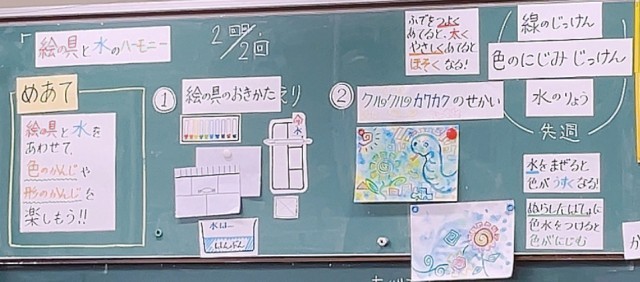 「絵の具と水のハーモニー
2回目/2回
めあて
絵の具と水を
あわせて、
色のかんじや
形のかんじを
楽しもう!!
① 絵の具のおきかた
水は…
はんぶん
② クルックルのカクカクのせかい
ふでをつよく
あてると、太く
やさしくあてると
ほそくなる!
線のじっけん
色のにじみじっけん
水のりょう
先週
水をまぜると
色がうすくなる!
色水をつけると
色がにじむ